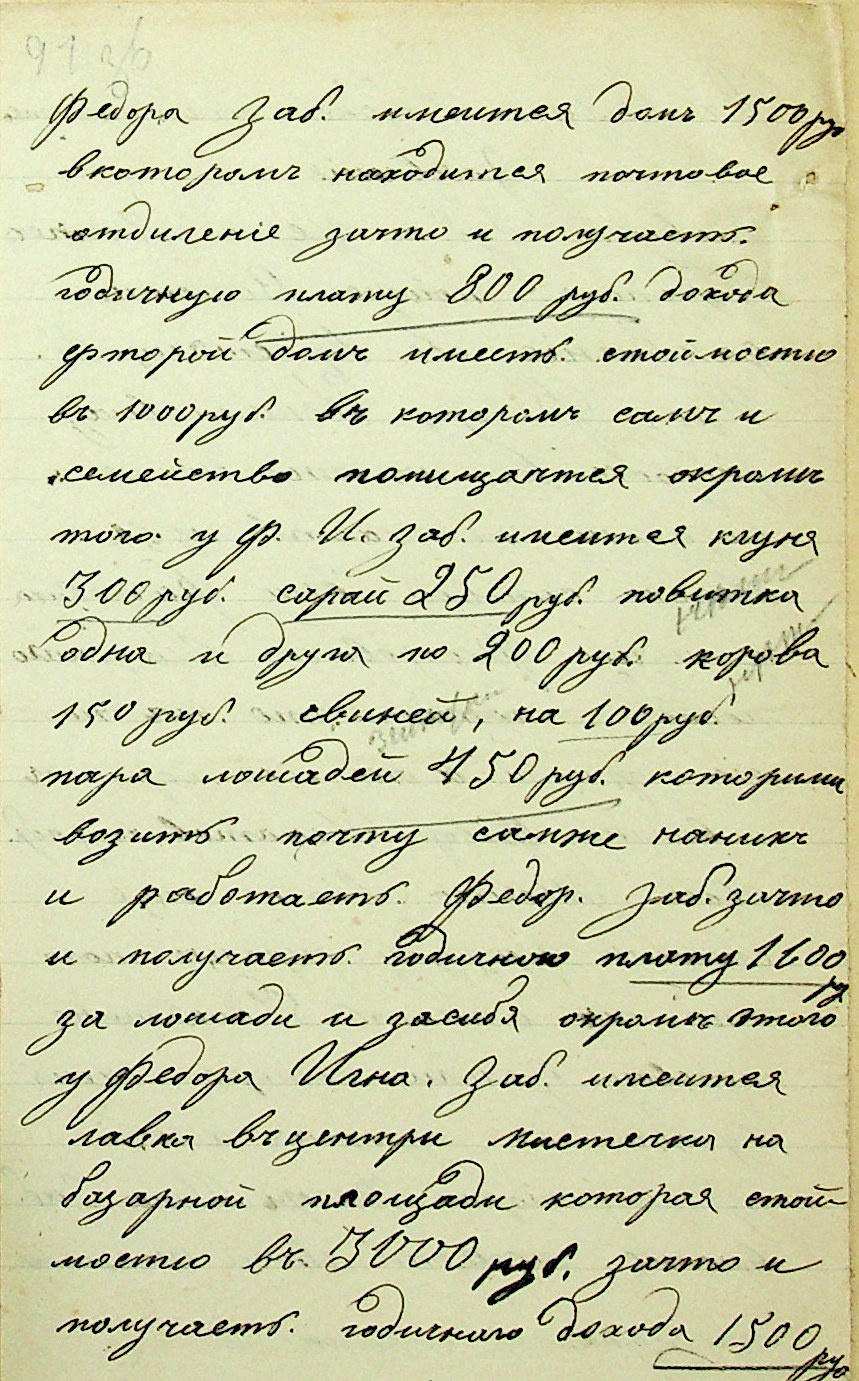 91 об
Федора Заб. имеится домъ 1500 ру
вкоторомъ находится почтовое
отдиленіе зачто и получаетъ.
годичную плату 800 руб. дохода
фторой домъ имеетъ. стоймостю
въ 1000 руб. въ которомъ самъ и
семейство помищаится окромъ
того. у Ф. И. Заб. имеится клуня
300 руб. сарай 250 руб. повитка
одна и друга по 200 руб. корова
150 руб. свиней, на 100 руб.
пара лошадей 450 руб. которими
возитъ почту самже нанихъ
и работаетъ. Федор. Заб. зачто
и получаетъ. годичною плату 1600 ру
за лошади и засибя окромъ этого
у Федора Игна. Заб. имеится
лавка въцентри мистечка на
базарной площади которая стой-
мостю въ. 3000 руб. зачто и
получаетъ. годичнаго дохода 1500 ру